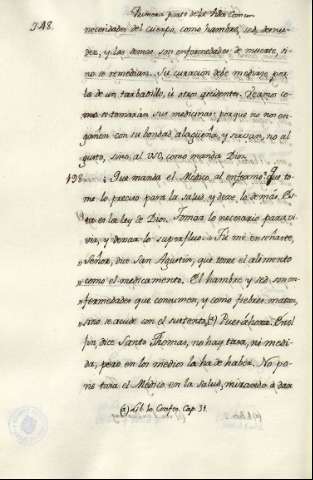 748. Primera parte de la Vida Comun
necesidades del cuerpo, como hambre, sed, desnu-
dez, y las demas son enfermedades de muerte, si
no se remedian. Su curacion debe medirse por
la de un tarbatillo, ú otros accidentes. Veamos co-
mo se tomarán sus medicinas: porque no nos en-
gañen con su bondad alagüeña, y sirvan, no al
gusto, sino, al uso, como manda Dios.
198. Que manda el Médico al enfermo? Que to-
me lo preciso para la salud, y dexe lo demas. Es-
ta es la ley de Dios. Tomar lo necesario para vi-
vir, y dexar lo superfluo. Tú me enseñaste,
„ Señor, dice San Agustin, que tome el alimento
„ como el medicamento. El hambre y sed, son en-
„ fermedades que consumen, y como fiebres matan,
„ sino se acude con el sustento. (a) Pues ahora: En el
fin, dice Santo Thomas, no hay tasa, ni medi-
da, pero en los medios la ha de haber. No po-
ne tasa el Médico en la salud, mirando á dar
(a) Lib. 10. Confes. Cap. 31.